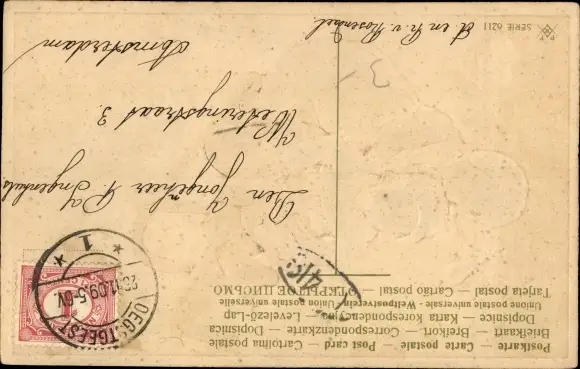 Postkarte — Carte postale — Post card — Cartolina postale
Briefkaart — Brefkort — Correspondenzkarte — Dopisnica
Dopisnice — Karta korespondencyjna — Levelező-Lap
Unione postale universale - Weltpostverein - Union postale universelle
Tarjeta postal — Cartão postal — ОТКРЫТОЕ ПИСЬМО
OEGSTGEEST
09.5-6V.
1
4/5
Den Jongeheer P. Ingenhuls
Weteringstraat 3.
Amsterdam
3
A. en C. v. Rosenkel
SERIE 6211